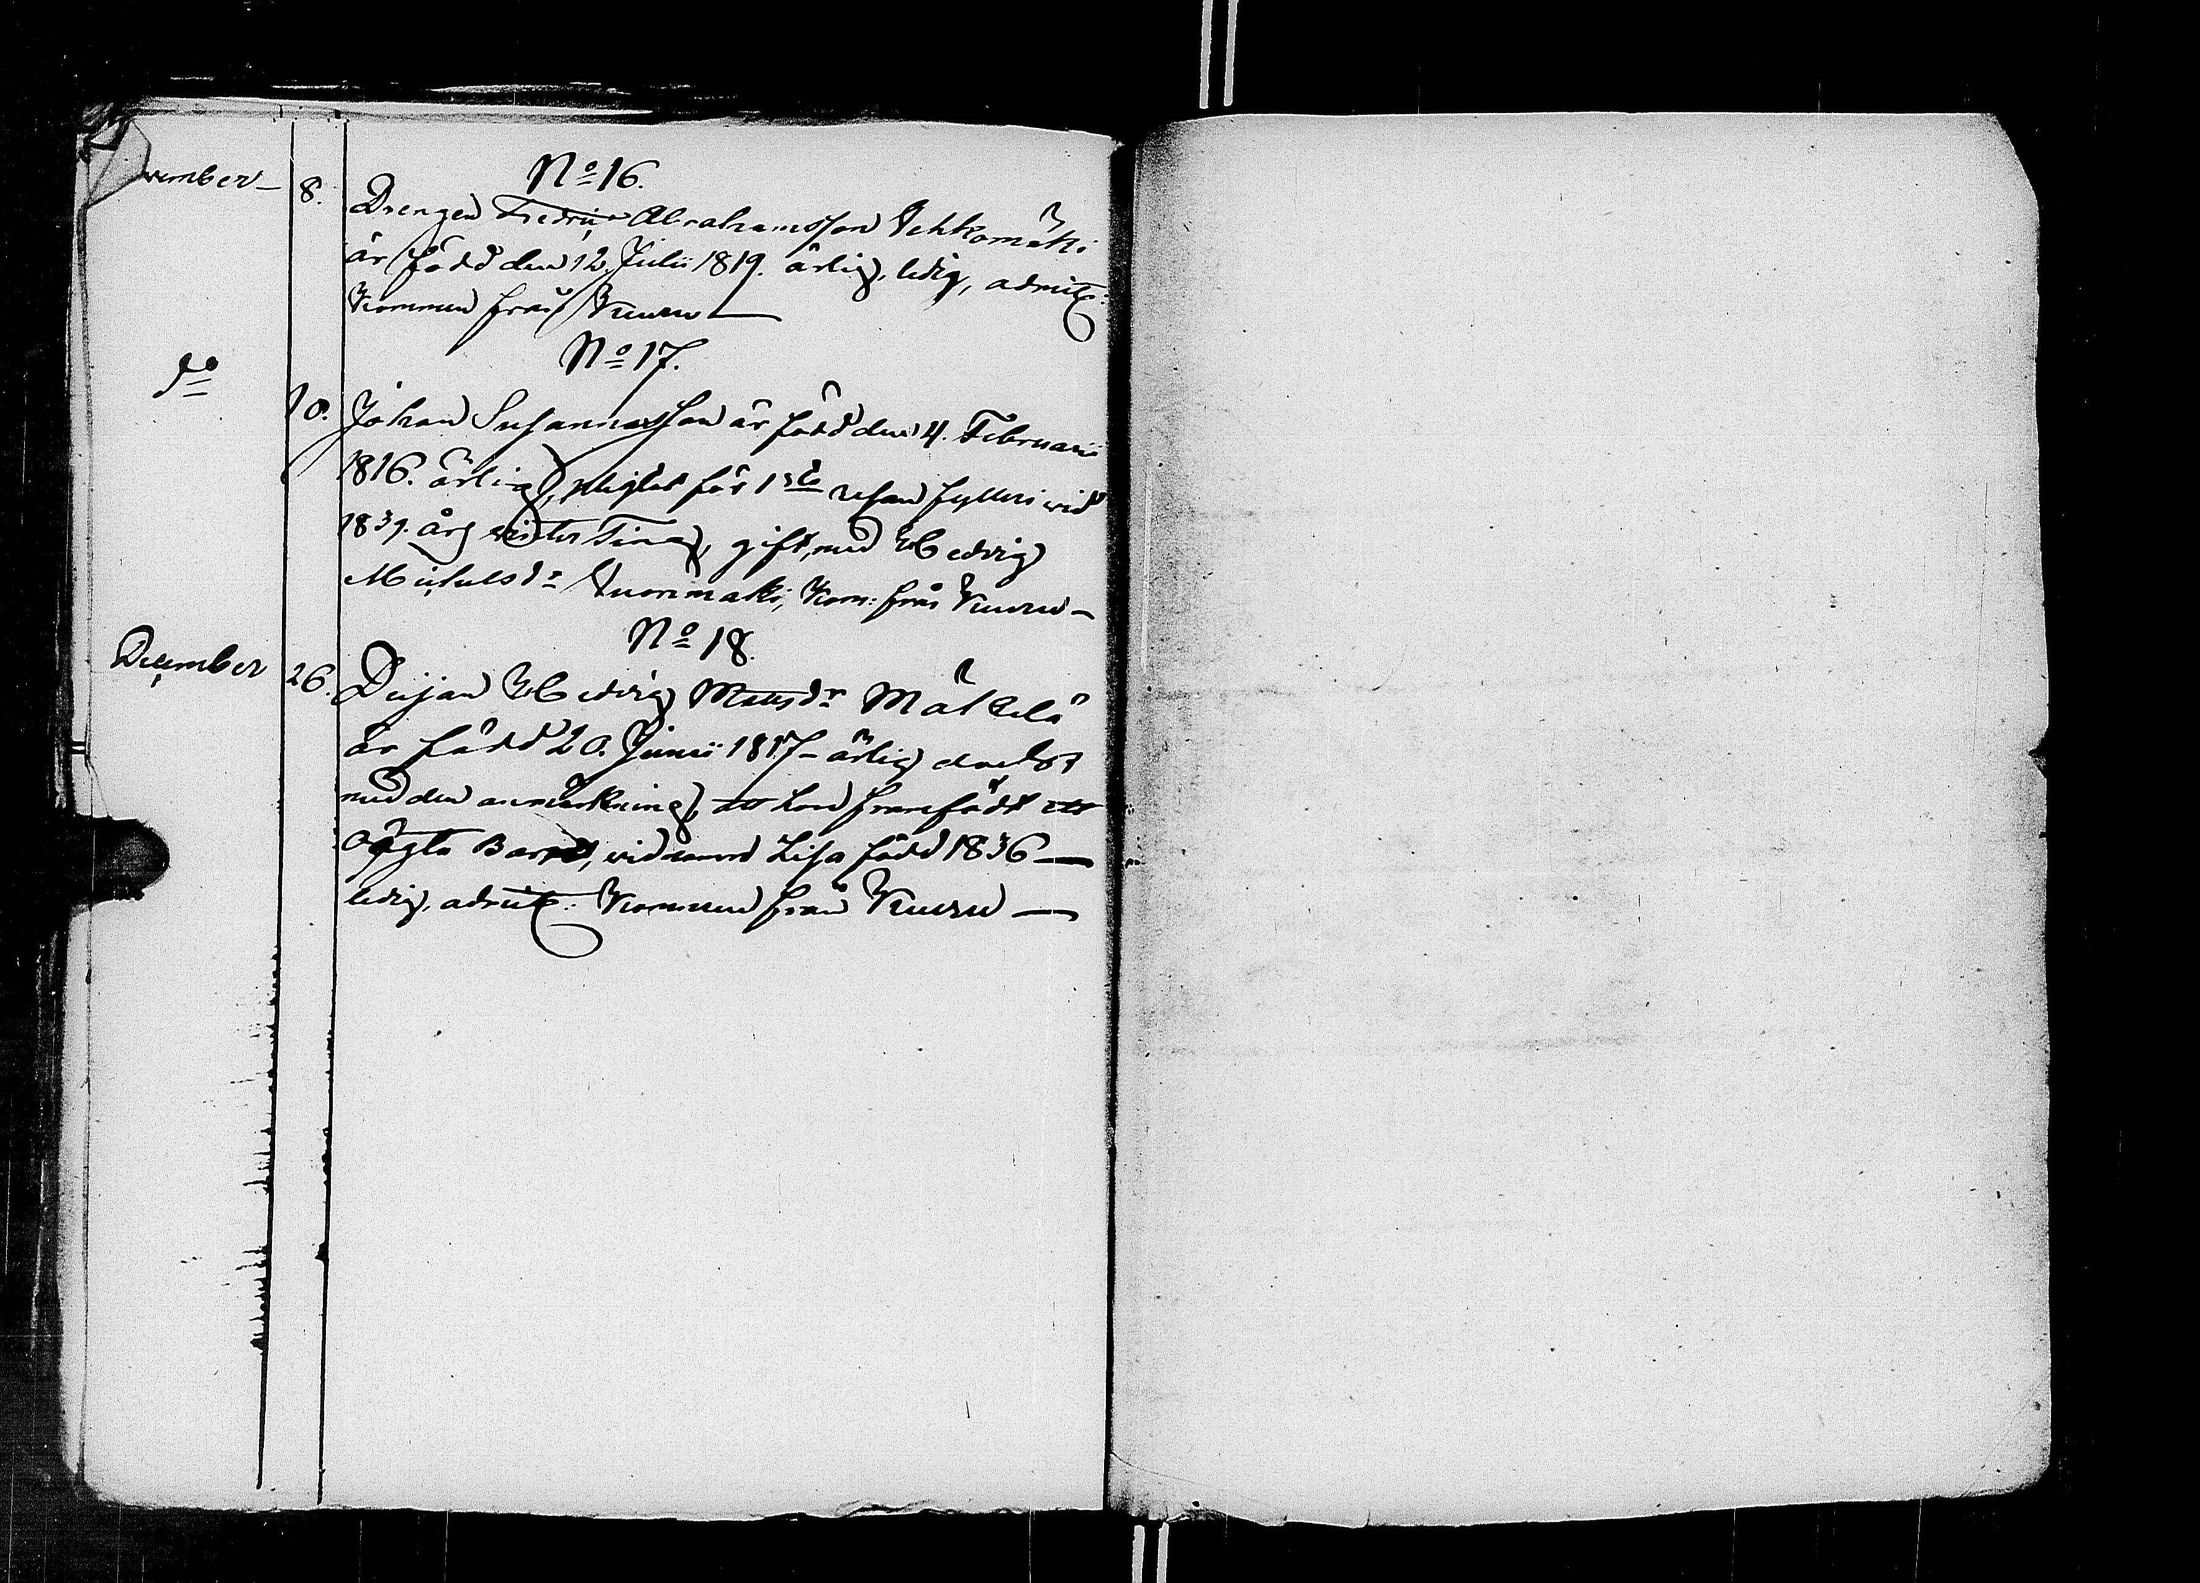 November 8.
No 16.
Drengen Fredric Abrahamsson Vehkomäki
är född den 12 Julii 1819. ärlig, ledig, admitt:
Kommen från Kuuru
No 17.
do 10. Johan Susannasson är född den 4. Februarii
1816. ärlig, pligtat för 1sta resan fylleri vid
1839. års winter Ting, gift, med Hedvig
Michelsdr Vuorimäki, Kom: från Kuuru
No 18.
December 26. Pigan Hedvig Mattsdr Mäkelä
är född 20. Junii 1817 ärlig
med den anmärkning, att hon framfödt ett
oägta Barn, vid namn Lisa född 1836
ledig, admitt: Kommen från Kuuru